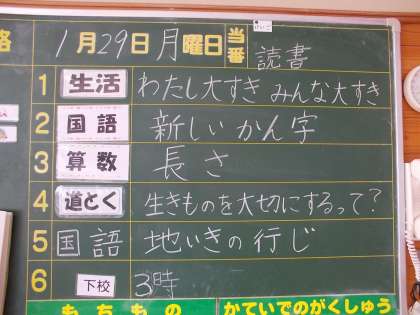 1月29日月曜日 当番 読書
1 生活 わたし大すき みんな大すき
2 国語 新しいかん字
3 算数 長さ
4 道とく 生きものを大切にするって?
5 国語 地いきの行じ
6 下校 3時
もちもの かていでのがくしゅう